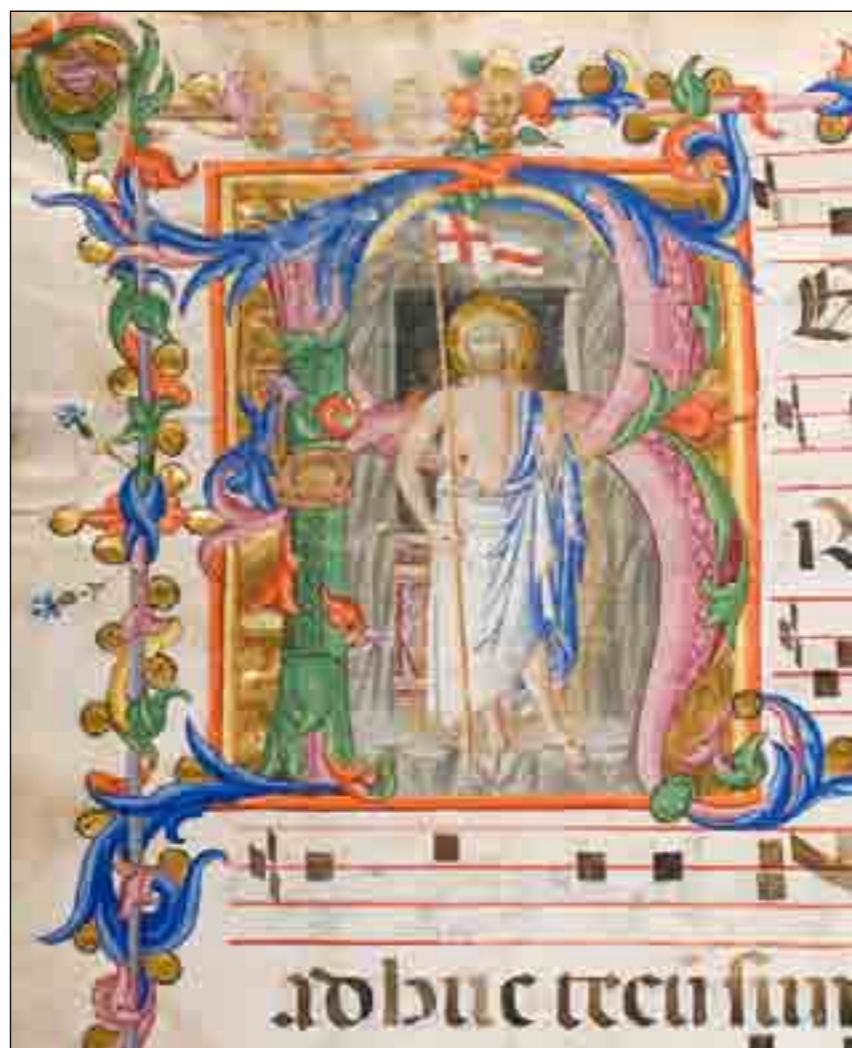 R
adhuc tecū sum